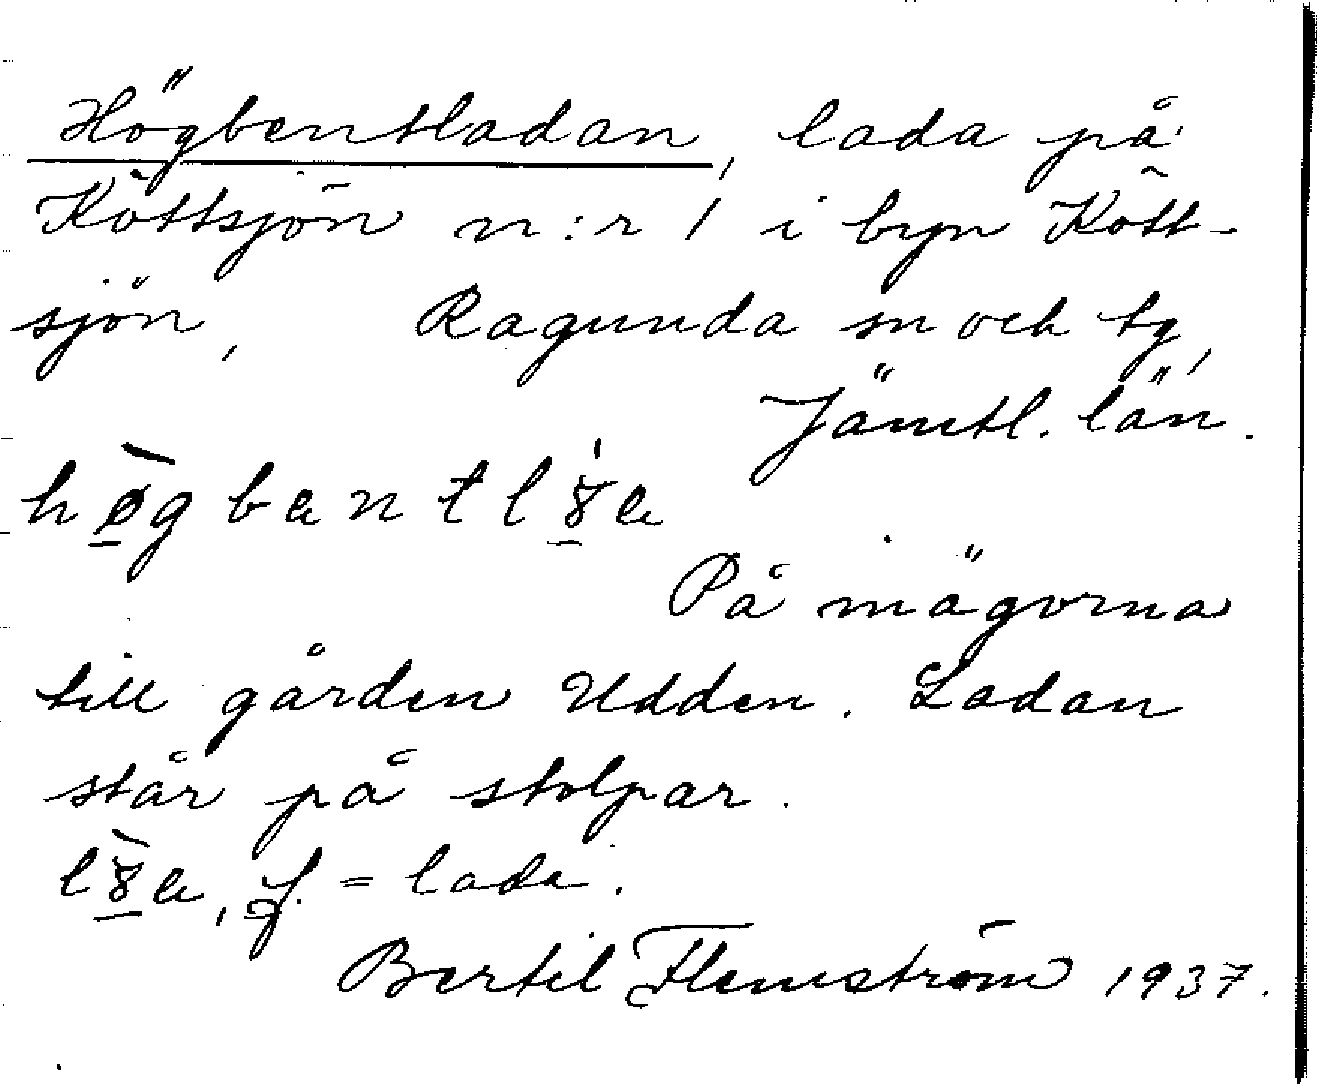 Högbentladan, lada på
Köttsjön n:r 1 i byn Kött-
sjön, Ragunda sn och tg,
Jämtl. län.
På mägorna
till gården Udden. Ladan
står på stolpar.
f. = lada.
Bertil Flemström 1937.